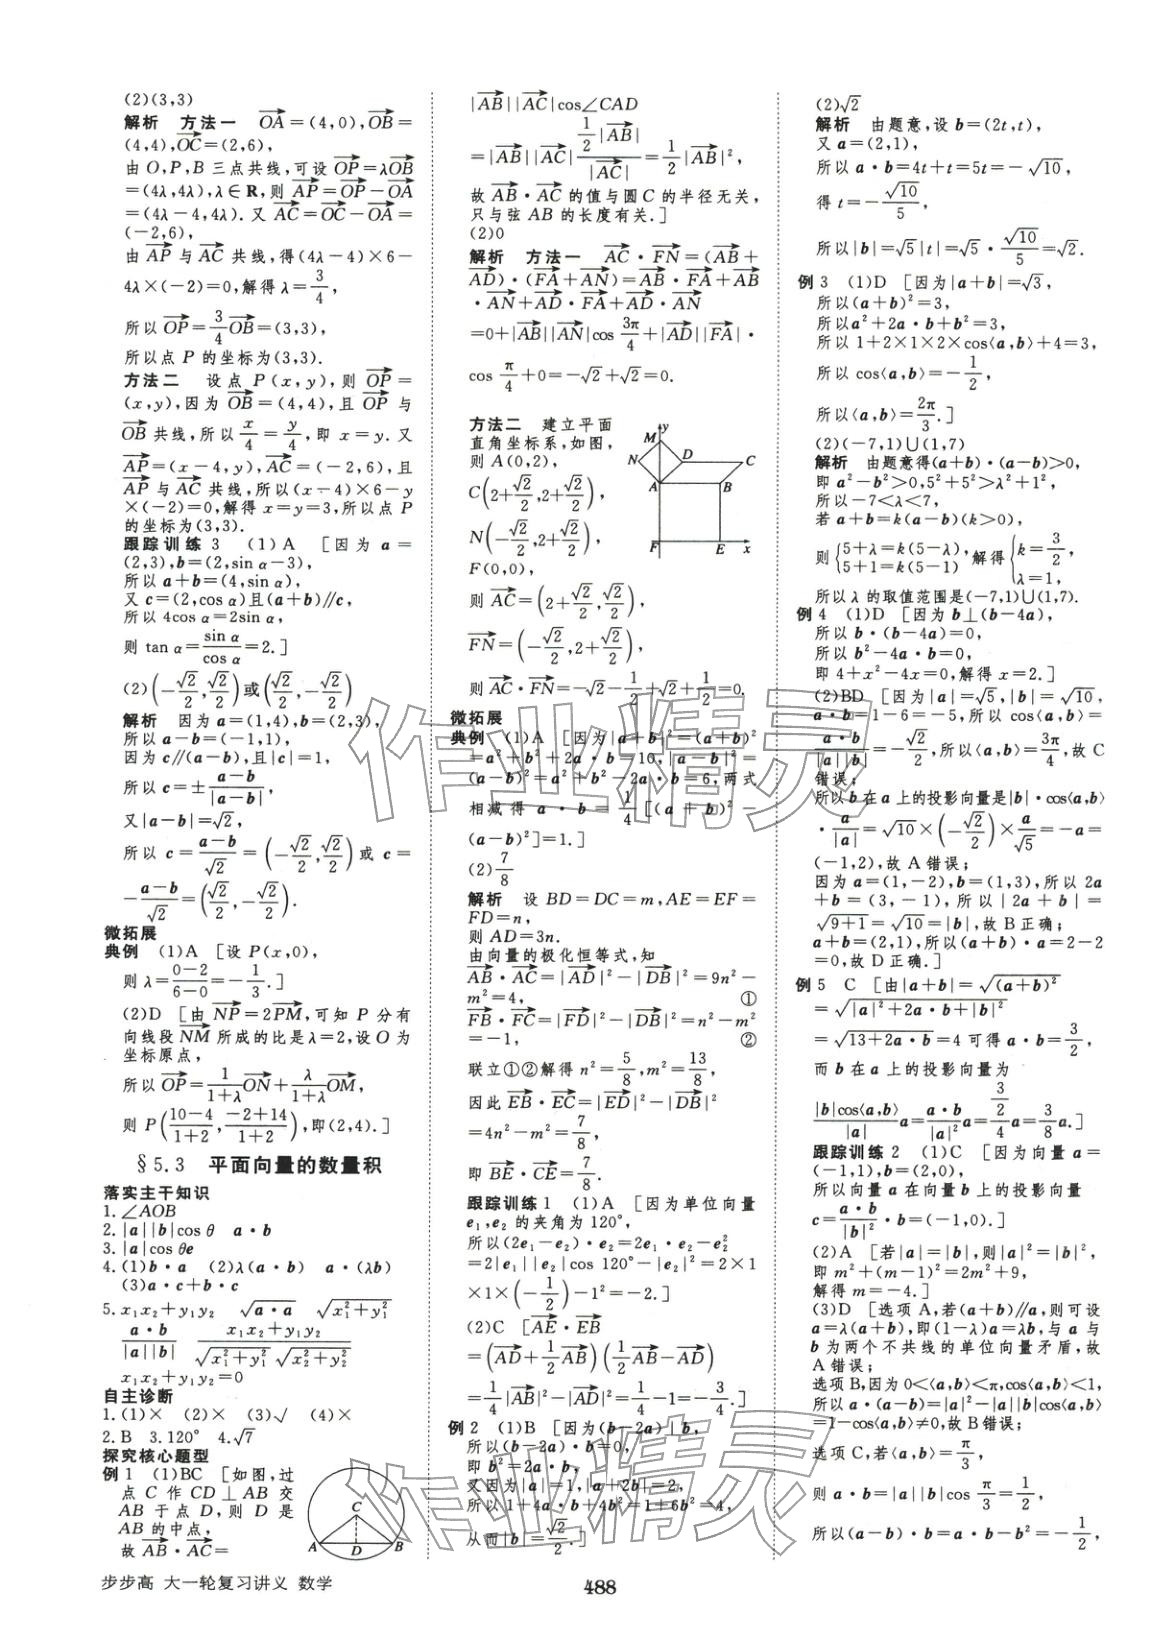 (2)(3,3)
解析 方法一 OA→=(4,0),OB→=
(4,4),OC→=(2,6),
由 O,P,B 三点共线,可设 OP→=λOB→
=(4λ,4λ),λ∈R,则 AP→=OP→−OA→
=(4λ−4,4λ).又 AC→=OC→−OA→=
(−2,6),
由 AP→ 与 AC→ 共线,得(4λ−4)×6−
4λ×(−2)=0,解得 λ=3/4,
所以 OP→=3/4 OB→=(3,3),
所以点 P 的坐标为(3,3).
方法二 设点 P(x,y),则 OP→=
(x,y),因为 OB→=(4,4),且 OP→ 与
OB→ 共线,所以 x/4=y/4,即 x=y.又
AP→=(x−4,y),AC→=(−2,6),且
AP→ 与 AC→ 共线,所以(x−4)×6−y
×(−2)=0,解得 x=y=3,所以点 P
的坐标为(3,3).
跟踪训练 3 (1)A [因为 a=
(2,3),b=(2,sin α−3)
所以 a+b=(4,sin α),
又 c=(2,cos α)且(a+b)//c,
所以 4cos α=2sin α,
则 tan α=sin α/cos α=2.]
(2)(−√2/2,√2/2)或(√2/2,−√2/2)
解析 因为 a=(1,4),b=(2,3),
所以 a−b=(−1,1),
因为 c//(a−b),且|c|=1,
所以 c=±(a−b)/|a−b|,
又|a−b|=√2,
所以 c=(a−b)/√2=(−√2/2,√2/2)或 c=
−(a−b)/√2=(√2/2,−√2/2).
微拓展
典例 (1)A [设 P(x,0),
则 λ=(0−2)/(6−0)=−1/3.]
(2)D [由 NP→=2PM→,可知 P 分有
向线段 NM→ 所成的比是 λ=2,设 O 为
坐标原点,
所以 OP→=1/(1+λ) ON→+λ/(1+λ) OM→,
则 P((10−4)/(1+2),(−2+14)/(1+2)),即(2,4).]
§5.3 平面向量的数量积
落实主干知识
1.∠AOB
2.|a||b|cos θ a·b
3.|a|cos θe
4.(1)b·a (2)λ(a·b) a·(λb)
(3)a·c+b·c
5.x₁x₂+y₁y₂ √(a·a) √(x₁²+y₁²)
a·b/(|a||b|) (x₁x₂+y₁y₂)/(√(x₁²+y₁²)√(x₂²+y₂²))
x₁x₂+y₁y₂=0
自主诊断
1.(1)× (2)× (3)√ (4)×
2.B 3.120° 4.√7
探究核心题型
例 1 (1)BC [如图,过
点 C 作 CD⊥AB 交
AB 于点 D,则 D 是
AB 的中点,
故 AB→·AC→=
C
A D B
|AB→||AC→|cos∠CAD
=|AB→||AC→| (1/2|AB→|)/|AC→|=1/2|AB→|²,
故 AB→·AC→ 的值与圆 C 的半径无关,
只与弦 AB 的长度有关.]
(2)0
解析 方法一 AC→·FN→=(AB→+
AD→)·(FA→+AN→)=AB→·FA→+AB→
·AN→+AD→·FA→+AD→·AN→
=0+|AB→||AN→|cos 3π/4+|AD→||FA→|·
cos π/4+0=−√2+√2=0.
方法二 建立平面
直角坐标系,如图,
则 A(0,2),
C(2+√2/2,2+√2/2),
N(−√2/2,2+√2/2),
F(0,0),
y
M
N D C
A B
F E x
则 AC→=(2+√2/2,√2/2),
FN→=(−√2/2,2+√2/2),
则 AC→·FN→=−√2−1/2+√2+1/2=0.
微拓展
典例 (1)A [因为|a+b|²=(a+b)²
=a²+b²+2a·b=10,|a−b|²=
(a−b)²=a²+b²−2a·b=6,两式
相减得 a·b=1/4[(a+b)²−
(a−b)²]=1.]
(2)7/8
解析 设 BD=DC=m,AE=EF=
FD=n,
则 AD=3n.
由向量的极化恒等式,知
AB→·AC→=|AD→|²−|DB→|²=9n²−
m²=4, ①
FB→·FC→=|FD→|²−|DB→|²=n²−m²
=−1, ②
联立①②解得 n²=5/8,m²=13/8,
因此 EB→·EC→=|ED→|²−|DB→|²
=4n²−m²=7/8,
即 BE→·CE→=7/8.
跟踪训练 1 (1)A [因为单位向量
e₁,e₂ 的夹角为 120°,
所以(2e₁−e₂)·e₂=2e₁·e₂−e₂²
=2|e₁||e₂|cos 120°−|e₂|²=2×1
×1×(−1/2)−1²=−2.]
(2)C [AE→·EB→
=(AD→+1/2AB→)(1/2AB→−AD→)
=1/4|AB→|²−|AD→|²=1/4−1=−3/4.]
例 2 (1)B [因为(b−2a)⊥b,
所以(b−2a)·b=0,
即 b²=2a·b,
又因为|a|=1,|a+2b|=2,
所以 1+4a·b+4b²=1+6b²=4,
从而|b|=√2/2.]
(2)√2
解析 由题意,设 b=(2t,t),
又 a=(2,1),
所以 a·b=4t+t=5t=−√10,
得 t=−√10/5,
所以|b|=√5|t|=√5·√10/5=√2.
例 3 (1)D [因为|a+b|=√3,
所以(a+b)²=3,
所以a²+2a·b+b²=3,
所以 1+2×1×2×cos⟨a,b⟩+4=3,
所以 cos⟨a,b⟩=−1/2,
所以⟨a,b⟩=2π/3.]
(2)(−7,1)∪(1,7)
解析 由题意得(a+b)·(a−b)>0,
即 a²−b²>0,5²+5²>λ²+1²,
所以−7<λ<7,
若 a+b=k(a−b)(k>0),
则{5+λ=k(5−λ),5+1=k(5−1) 解得{k=3/2,λ=1,
所以 λ 的取值范围是(−7,1)∪(1,7).
例 4 (1)D [因为 b⊥(b−4a),
所以 b·(b−4a)=0,
所以 b²−4a·b=0,
即 4+x²−4x=0,解得 x=2.]
(2)BD [因为|a|=√5,|b|=√10,
a·b=1−6=−5,所以 cos⟨a,b⟩=
a·b/(|a||b|)=−√2/2,所以⟨a,b⟩=3π/4,故 C
错误;
所以 b 在 a 上的投影向量是|b|·cos⟨a,b⟩
·a/|a|=√10×(−√2/2)×a/√5=−a=
(−1,2),故 A 错误;
因为 a=(1,−2),b=(1,3),所以 2a
+b=(3,−1),所以|2a+b|=
√(9+1)=√10=|b|,故 B 正确;
a+b=(2,1),所以(a+b)·a=2−2
=0,故 D 正确.]
例 5 C [由|a+b|=√((a+b)²)
=√(|a|²+2a·b+|b|²)
=√(13+2a·b)=4 可得 a·b=3/2,
而 b 在 a 上的投影向量为
(|b|cos⟨a,b⟩/|a|)a=(a·b/|a|²)a=((3/2)/4)a=3/8 a.]
跟踪训练 2 (1)C [因为向量 a=
(−1,1),b=(2,0),
所以向量 a 在向量 b 上的投影向量
c=(a·b/|b|²)·b=(−1,0).]
(2)A [若|a|=|b|,则|a|²=|b|²,
即 m²+(m−1)²=2m²+9,
解得 m=−4.]
(3)D [选项 A,若(a+b)//a,则可设
a=λ(a+b),即(1−λ)a=λb,与 a 与
b 为两个不共线的单位向量矛盾,故
A 错误;
选项 B,因为 0<⟨a,b⟩<π,cos⟨a,b⟩<1,
所以 a·(a−b)=|a|²−|a||b|cos⟨a,b⟩
=1−cos⟨a,b⟩≠0,故 B 错误;
选项 C,若⟨a,b⟩=π/3,
则 a·b=|a||b|cos π/3=1/2,
所以(a−b)·b=a·b−b²=−1/2,
步步高 大一轮复习讲义 数学
488
作业精灵
作业精灵